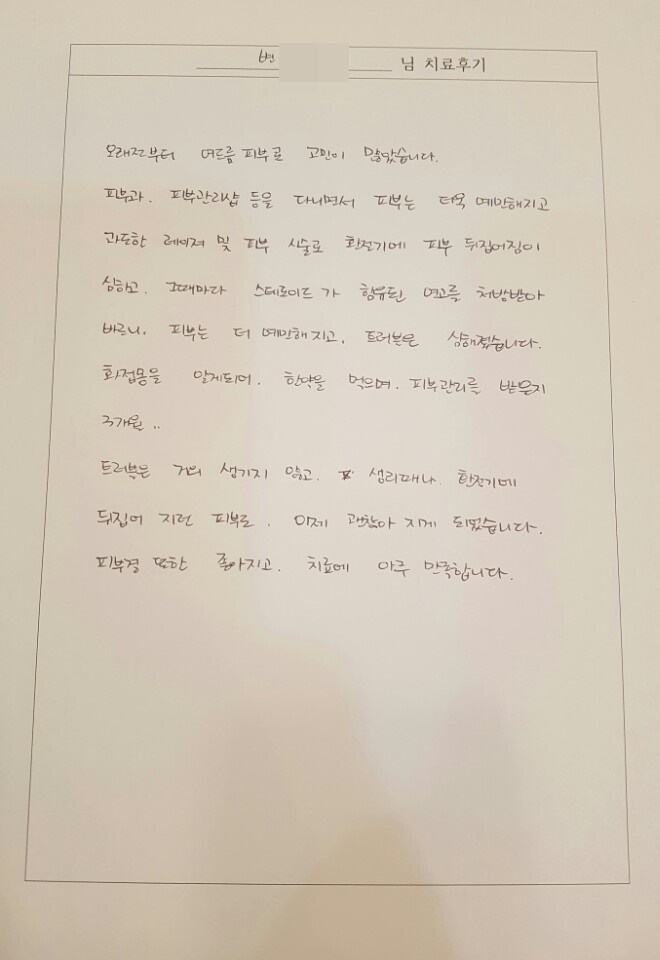 변 님 치료후기
오래전부터 여드름 피부로 고민이 많았습니다.
피부과. 피부관리샵 등을 다니면서 피부는 더욱 예민해지고
과도한 레이져 및 피부 시술로 환절기에 피부 뒤집어짐이
심하고. 그때마다 스테로이드가 함유된 연고를 처방받아
바르니. 피부는 더 예민해지고, 트러블은 심해졌습니다.
화접몽을 알게되어. 한약을 먹으며. 피부관리를 받은지
3개월..
트러블은 거의 생기지 않고. 생리때나. 환절기에
뒤집어 지던 피부로. 이제 괜찮아 지게 되었습니다.
피부결 또한 좋아지고. 치료에 아주 만족합니다.